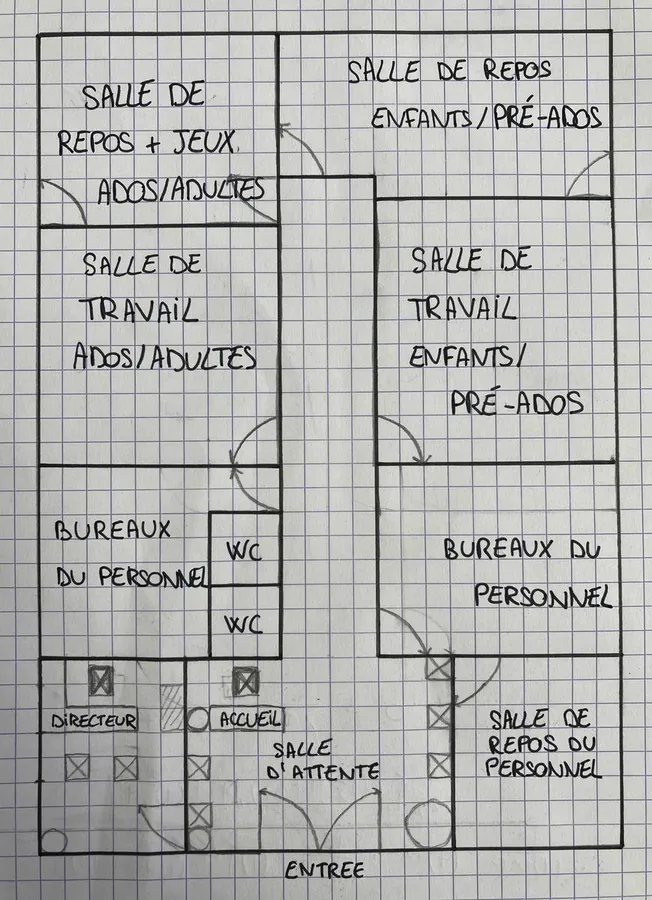 SALLE DE
REPOS + JEUX
ADOS/ADULTES
SALLE DE REPOS
ENFANTS/PRÉ-ADOS
SALLE DE
TRAVAIL
ADOS/ADULTES
SALLE DE
TRAVAIL
ENFANTS/
PRÉ-ADOS
BUREAUX
DU PERSONNEL
WC
WC
BUREAUX DU
PERSONNEL
DIRECTEUR
ACCUEIL
SALLE
D'ATTENTE
SALLE DE
REPOS DU
PERSONNEL
ENTREE